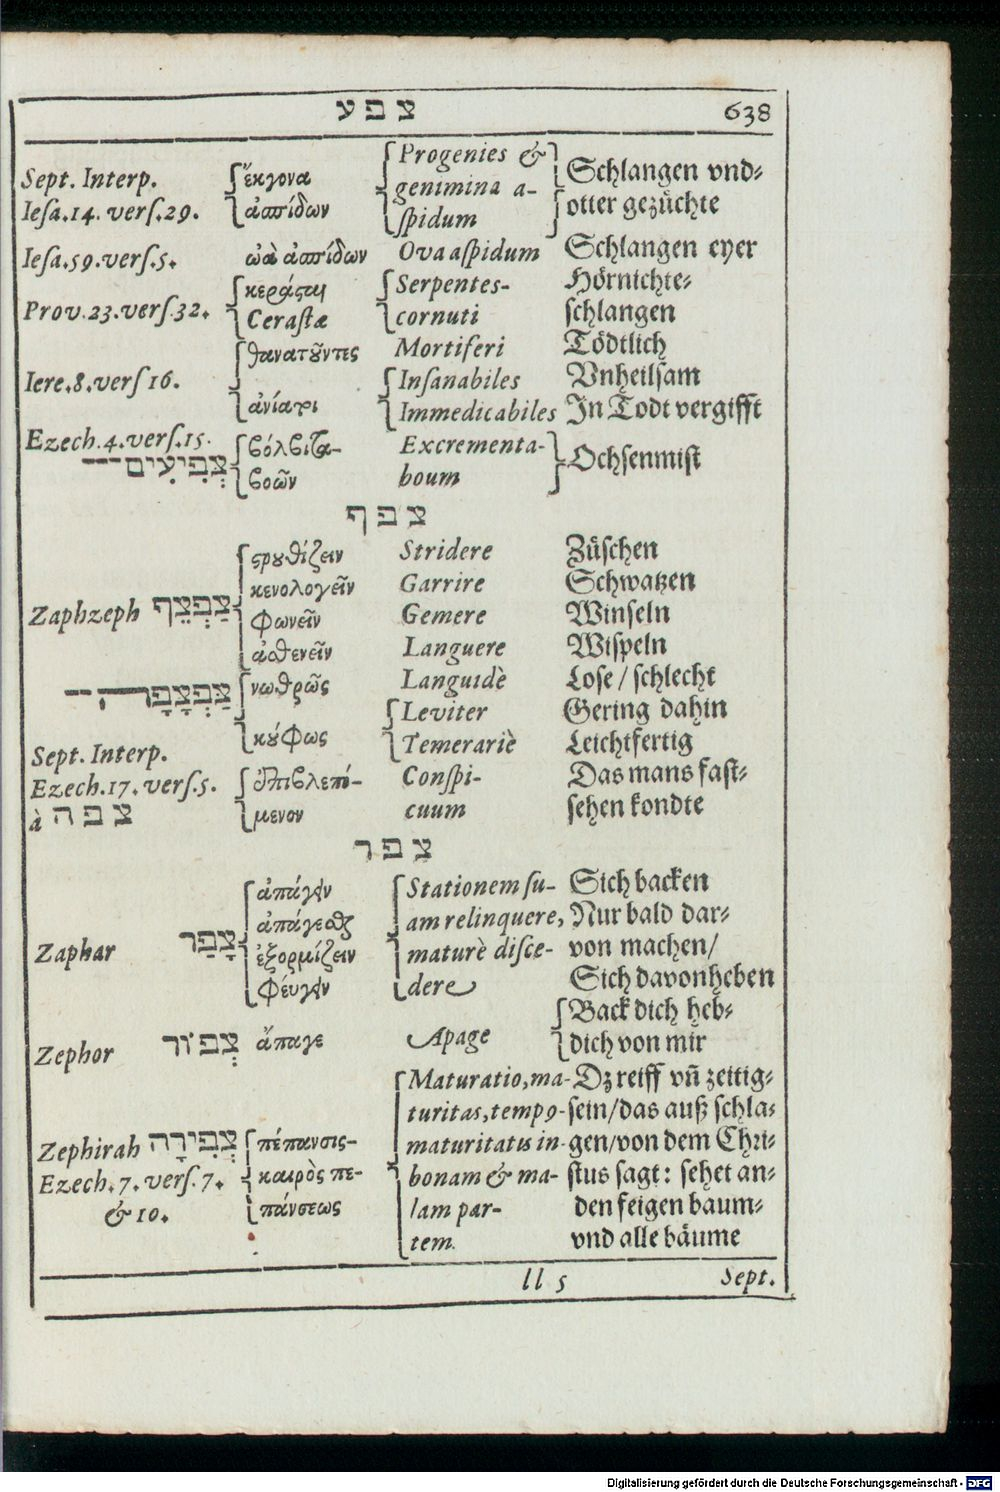 צ פ ע 638
Sept. Interp. ἔκγονα Progenies & Schlangen vnd-
Iesa.14. vers.29. ἀσπίδων genimina a- otter gezüchte
spidum
Iesa.59.vers.5. ὠὰ ἀσπίδων Ova aspidum Schlangen eyer
κεράσται Serpentes- Hörnichte-
Prov.23.vers.32. Cerastæ cornuti schlangen
θανατοῦντες Mortiferi Tödtlich
Iere.8.vers 16. Insanabiles Vnheilsam
ἀνίατοι Immedicabiles In Todt vergifft
Ezech.4.vers.15. βόλβιτα- Excrementa- Ochsenmist
צְפִיעִים βοῶν boum
צ פ ף
στρουθίζειν Stridere Züschen
κενολογεῖν Garrire Schwatzen
Zaphzeph צַפְצֵף φωνεῖν Gemere Winseln
ἀσθενεῖν Languere Wispeln
צַפְצָפָה νωθρῶς Languidè Lose / schlecht
Leviter Gering dahin
κούφως Temerariè Leichtfertig
Sept. Interp.
Ezech.17. vers.5. ἐπιβλεπό- Conspi- Das mans fast-
à צ פ ה μενον cuum sehen kondte
צ פ ר
ἀπάγειν Stationem su- Sich backen
ἀπάγεσθαι am relinquere, Nur bald dar-
Zaphar צָפַר ἐξορμίζειν maturè disce- von machen/
φεύγειν dere Sich davon heben
Back dich heb-
Zephor צְפוֹר ἄπαγε Apage dich von mir
Maturatio, ma- Dz reiff vñ zeitig-
turitas, tempꝰ- sein/das auß schla-
Zephirah צְפִירָה πέπανσις- maturitatis in- gen/von dem Chri-
Ezech.7. vers.7. καιρὸς πε- bonam & ma- stus sagt: sehet an-
& 10. πάνσεως lam par- den feigen baum-
tem. vnd alle bäume
ll 5 Sept.
Digitalisierung gefördert durch die Deutsche Forschungsgemeinschaft - DFG